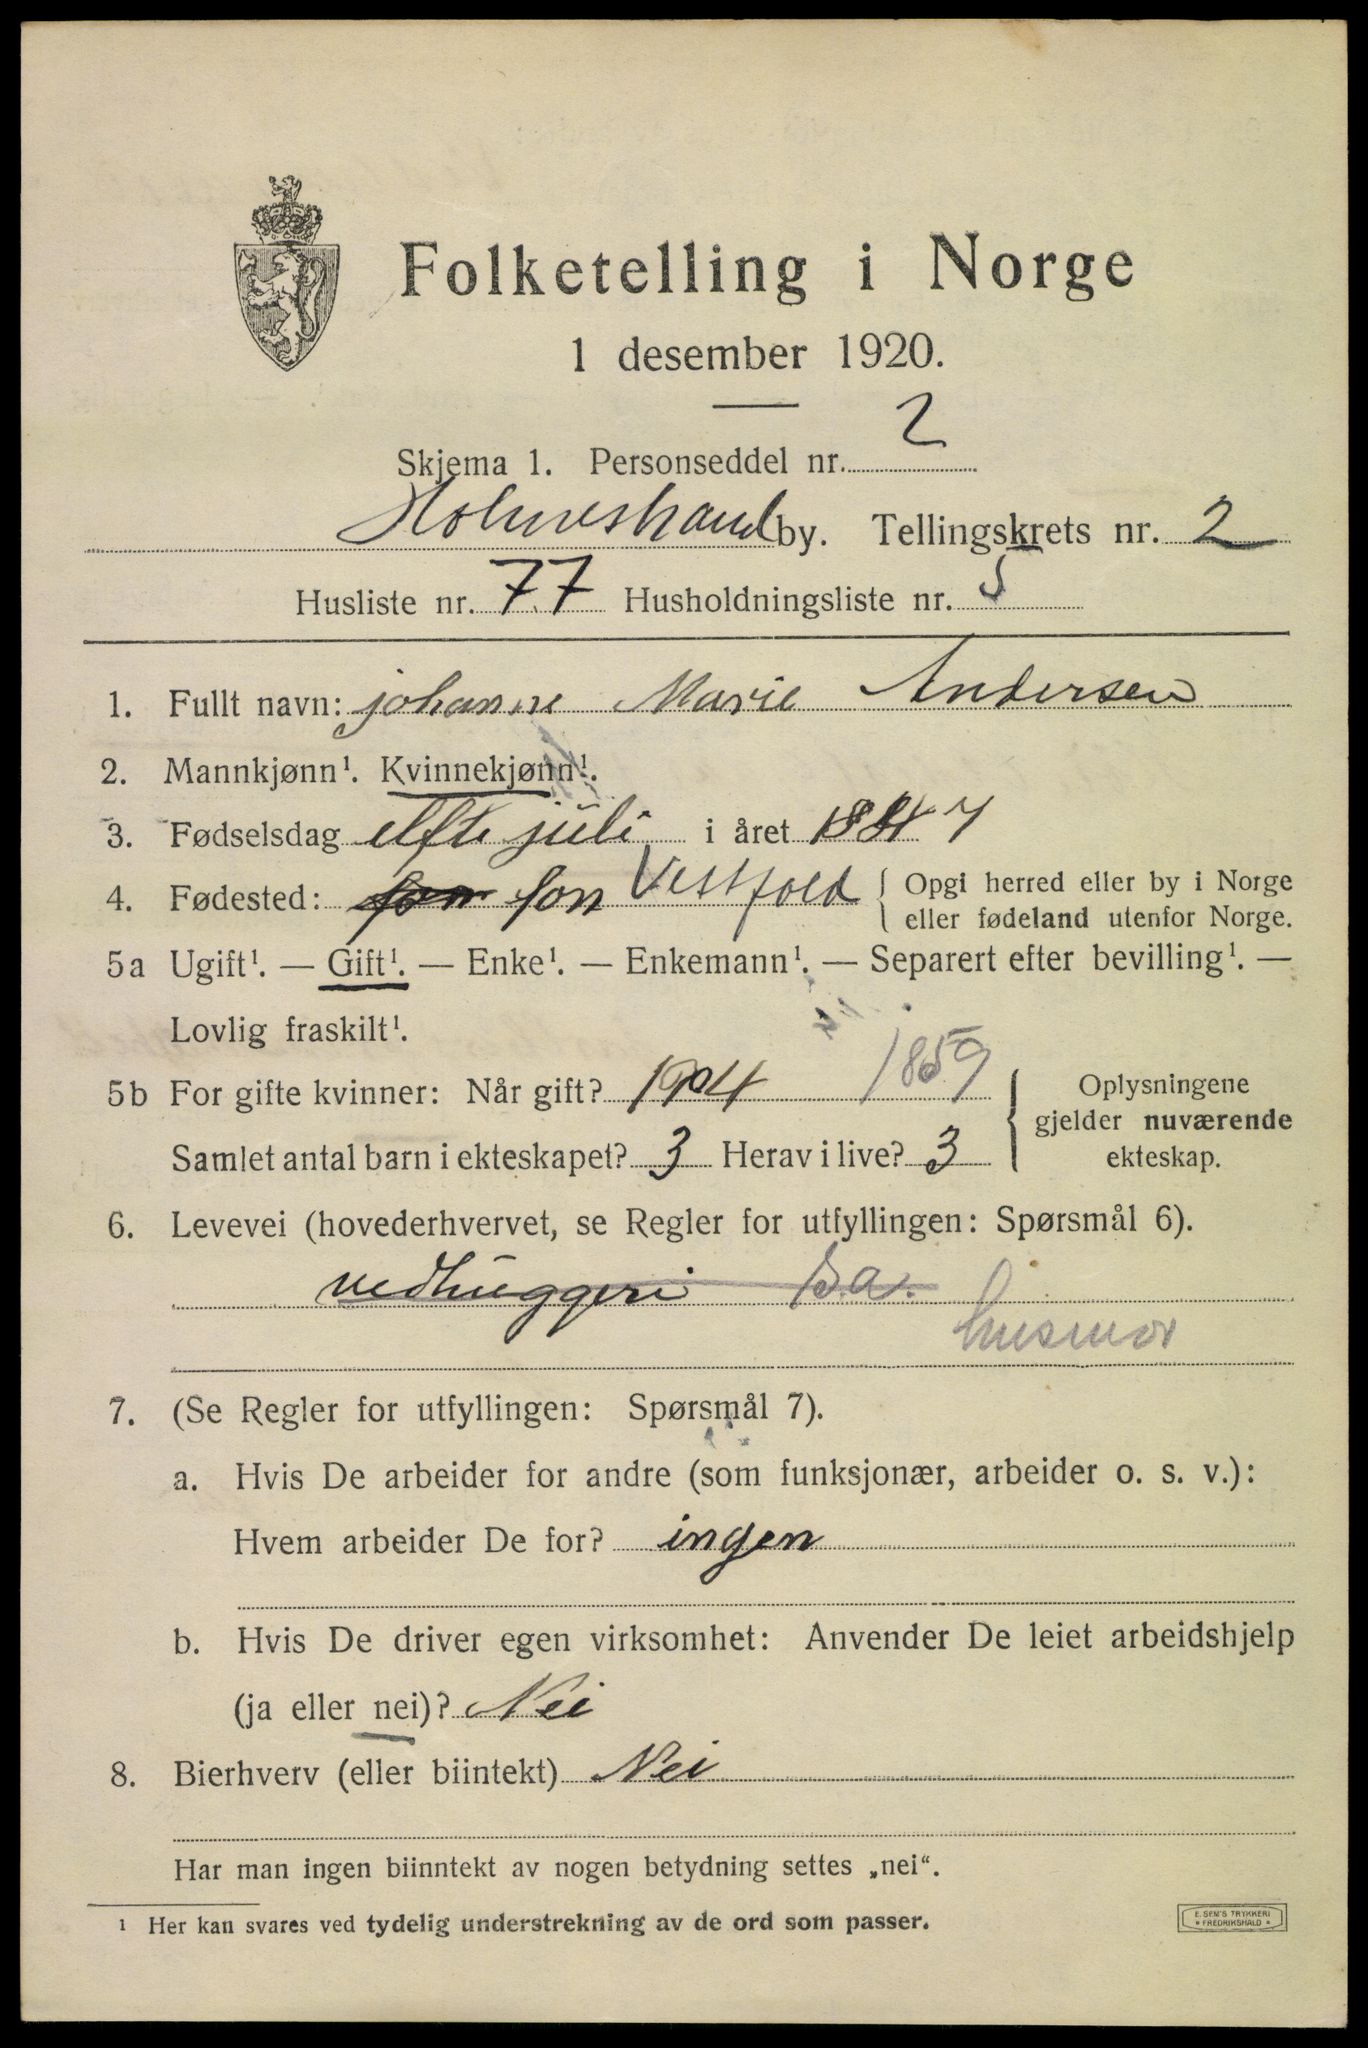 Folketelling i Norge
1 desember 1920.
Skjema 1. Personseddel nr. 2
Holmestrand by. Tellingskrets nr. 2
Husliste nr. 77 Husholdningsliste nr. 5
1. Fullt navn: johanne Marie Andersen
2. Mannkjønn¹. Kvinnekjønn¹.
3. Fødselsdag elfte juli i året
4. Fødested: fon Vestfold { Opgi herred eller by i Norge
eller fødeland utenfor Norge.
5a Ugift¹. — Gift¹. — Enke¹. — Enkemann¹. — Separert efter bevilling¹. —
Lovlig fraskilt¹.
1859
5b For gifte kvinner: Når gift? 1904
Samlet antal barn i ekteskapet? 3 Herav i live? 3
Oplysningene
gjelder nuværende
ekteskap.
6. Levevei (hovederhvervet, se Regler for utfyllingen: Spørsmål 6).
vedhuggeri s.a.
husmor
7. (Se Regler for utfyllingen: Spørsmål 7).
a. Hvis De arbeider for andre (som funksjonær, arbeider o. s. v.):
Hvem arbeider De for? ingen
b. Hvis De driver egen virksomhet: Anvender De leiet arbeidshjelp
(ja eller nei)? Nei
8. Bierhverv (eller biintekt) Nei
Har man ingen biinntekt av nogen betydning settes „nei“.
¹ Her kan svares ved tydelig understrekning av de ord som passer.
E. SEM'S TRYKKERI
FREDRIKSHALD